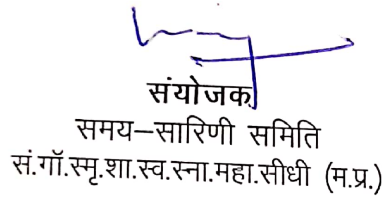 संयोजक
समय–सारिणी समिति
सं.गॉ.स्मृ.शा.स्व.स्ना.महा.सीधी (म.प्र.)